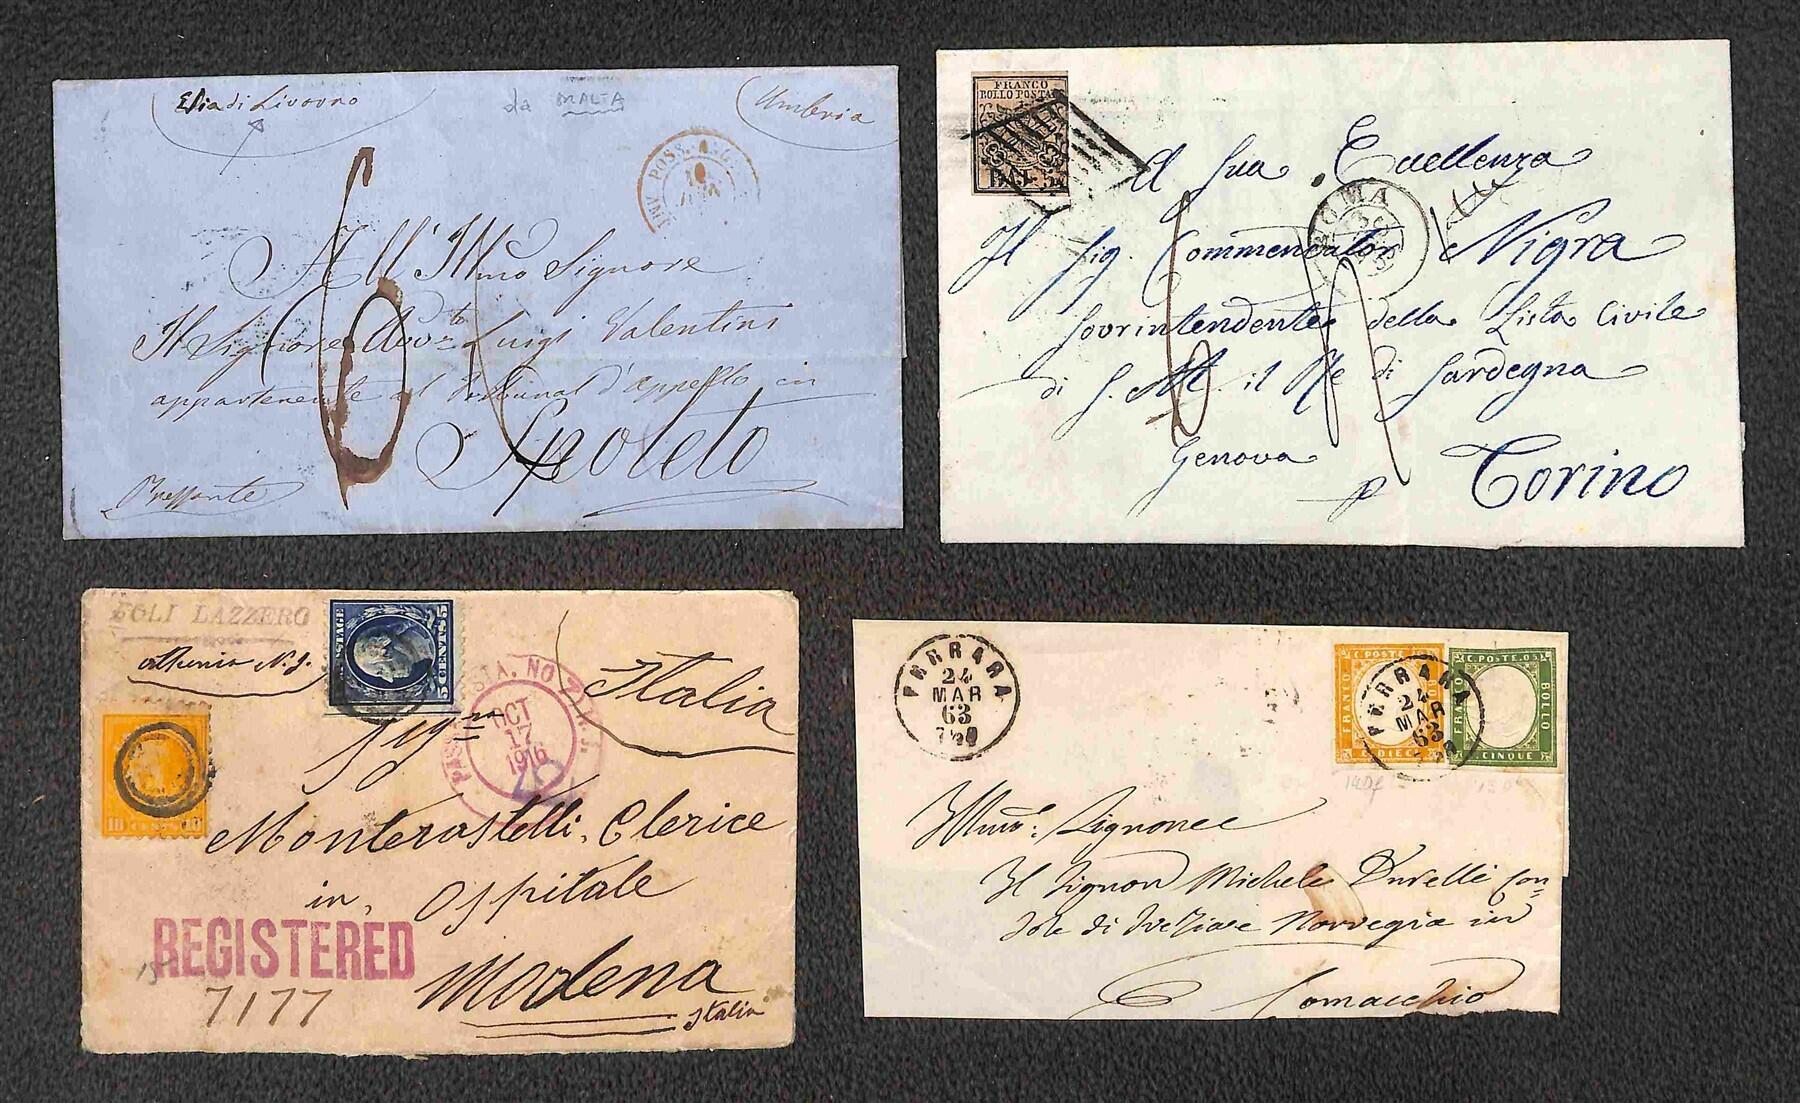 Via di Livorno
da MALTA
Umbria
POSS. ING.
All' Illmo Signore
Il Signore Avv.to Luigi Valentini
appartenente al Tribunal d'Appello in
Spoleto
Pressante
FRANCO
BOLLO POSTALE
BAJ. 5
A Sua Eccellenza
Il Sig. Commendator Nigra
Sovrintendente della Lista Civile
di S. M. il Re di Sardegna
Genova p Torino
ROMA
ZOLI LAZZERO
N. J.
POSTAGE
5 CENTS 5
10 CENTS 10
STA. NO 2
N.J.
OCT
17
1916
Italia
Sigra
Montecastelli Clerice
in Ospitale
Modena
Italia
REGISTERED
7177
FERRARA
24
MAR
63
C. POSTE
FRANCO
BOLLO
C. DIECI
C. POSTE. 05
FRANCO
BOLLO
CINQUE
FERRARA
24
MAR
63
Illmo: Signore
Il Signor Michele Durelli Con=
sole di Svezia e Norvegia in
Comacchio